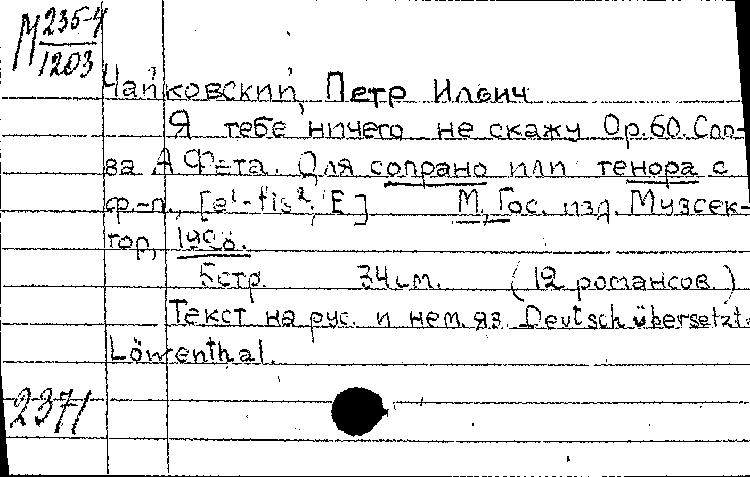 М 235-4
1203
Чайковский, Петр Ильич
Я тебе ничего не скажу Op.60. Сло-
ва А Фета. Для сопрано или тенора с
ф.-п., [e¹-fis², E] М., Гос. изд. Музсек-
тор,
5 стр. 34 см. (12 романсов.)
Текст на рус. и нем. яз. Deutsch übersetzt.
Löwenthal.
2371